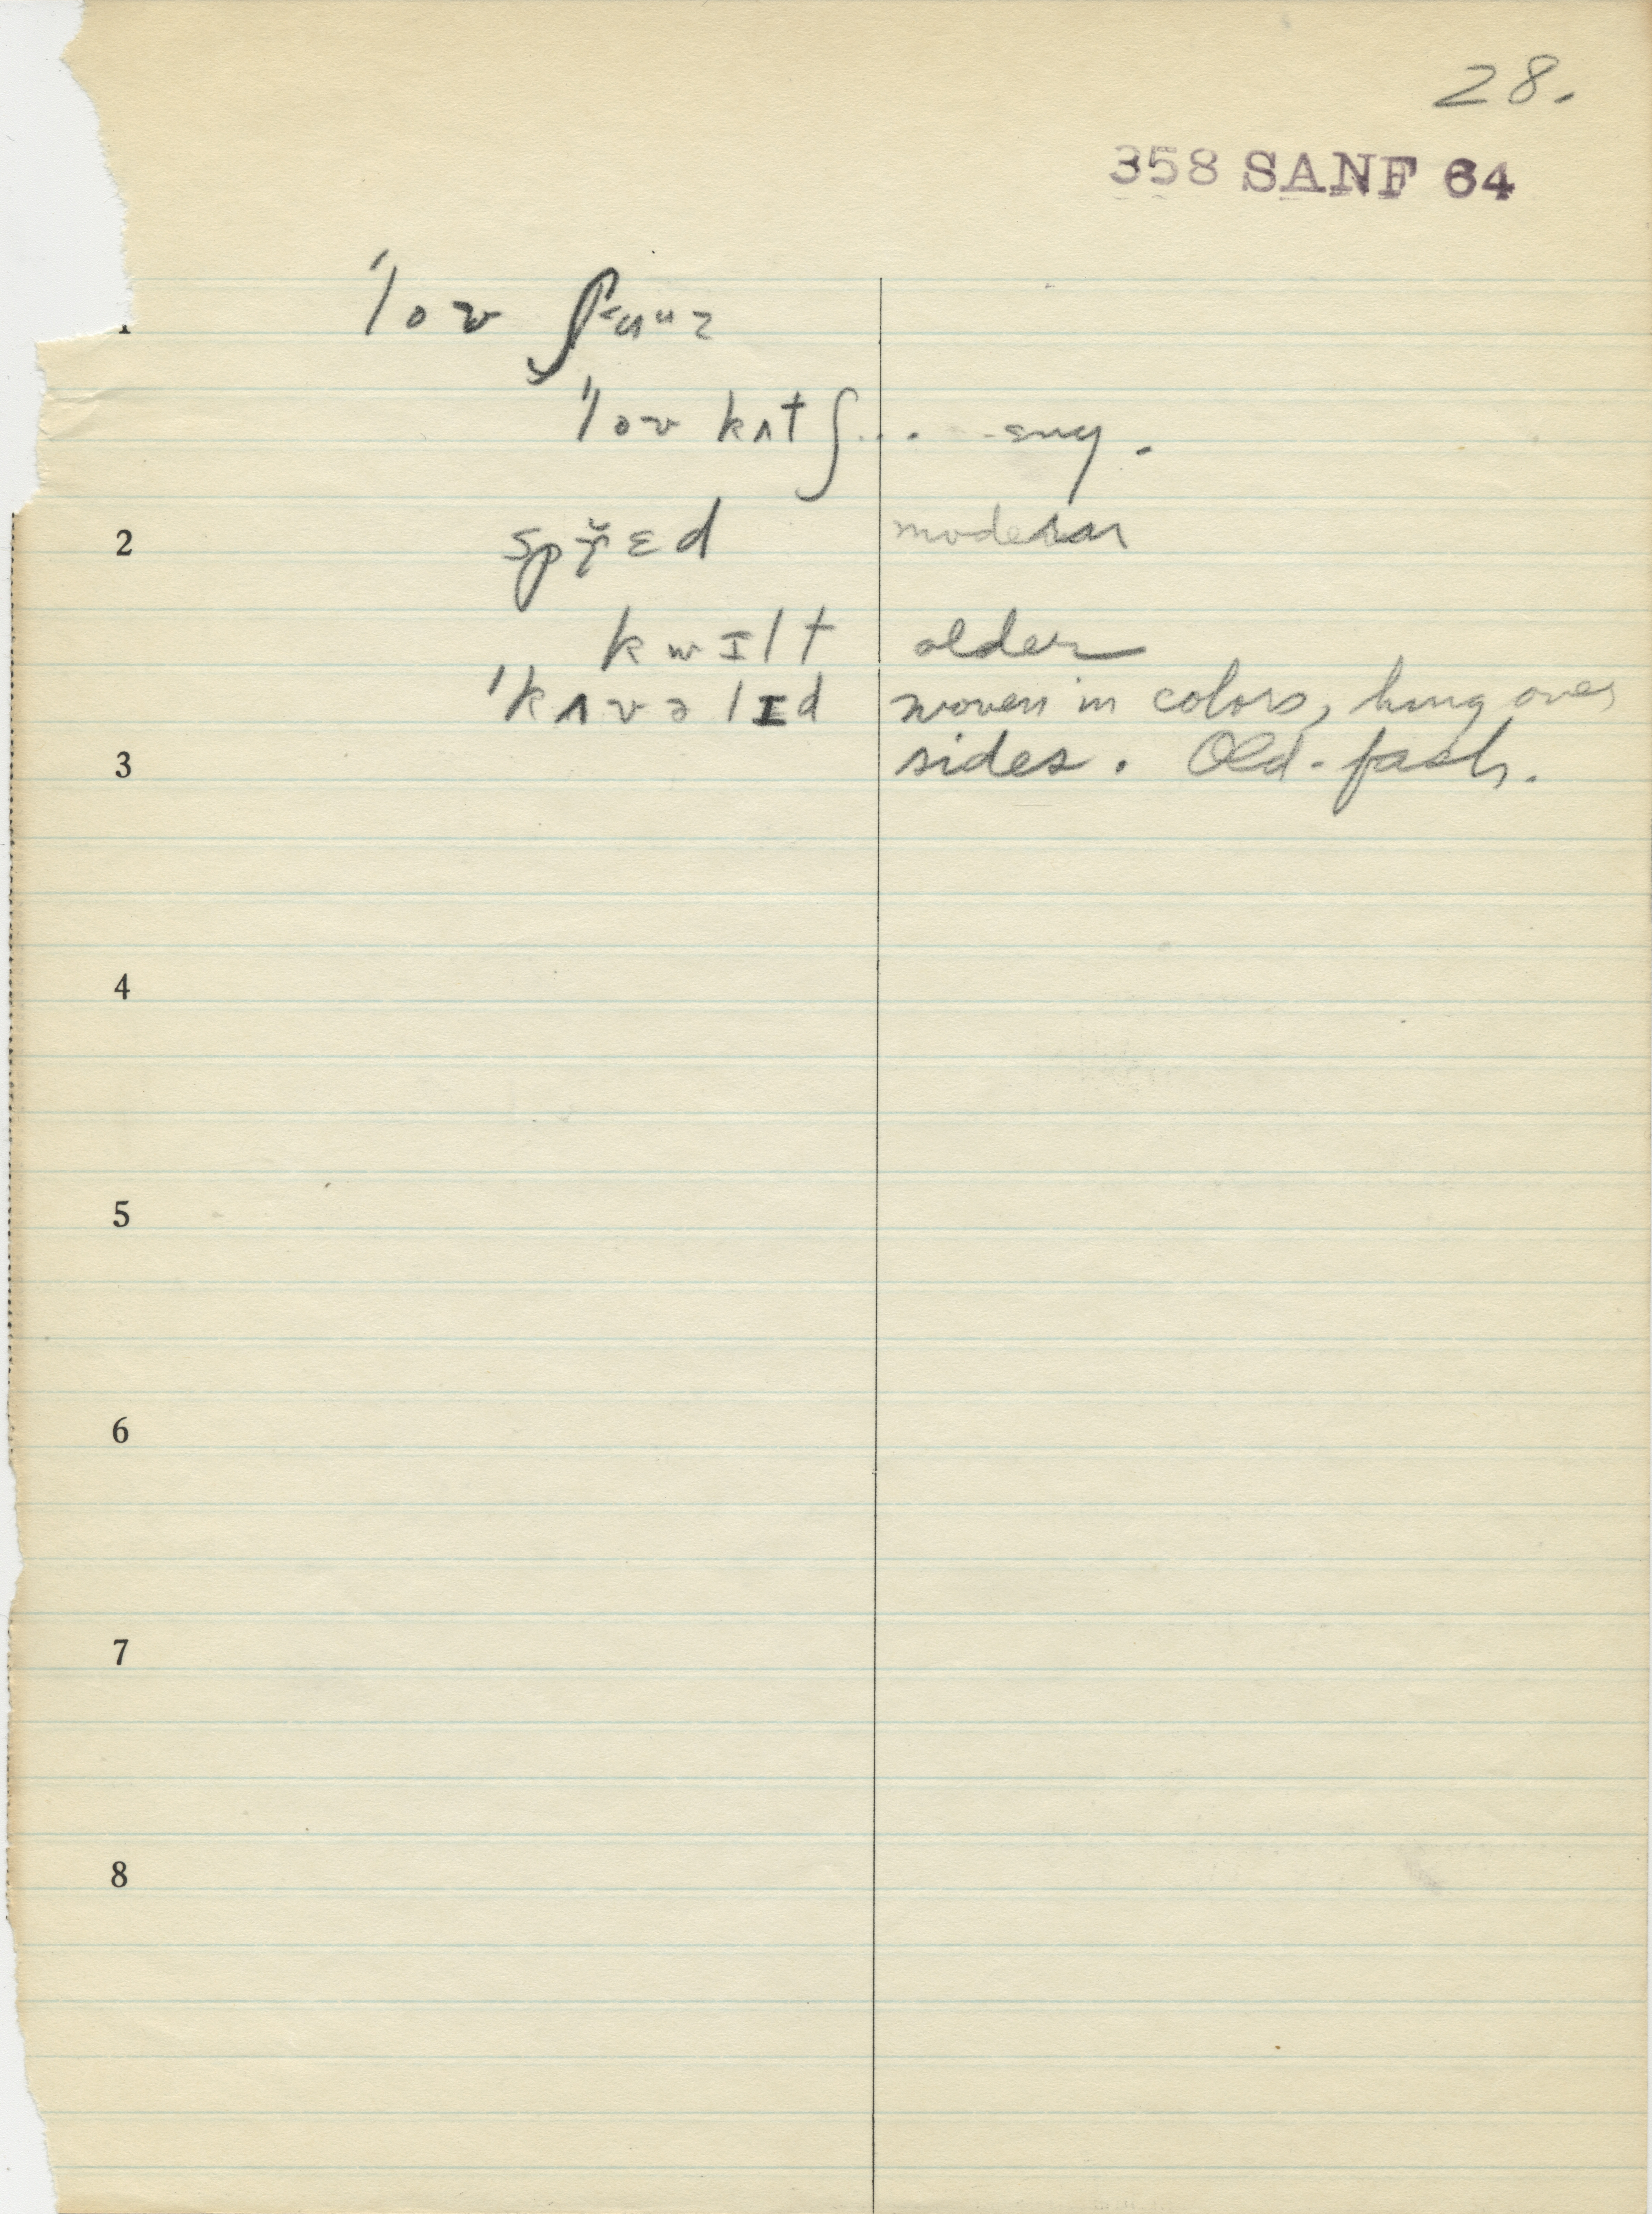 28.
358 SANF 64
1 ˈlov
ˈlov kʌtʃ... eng.
2 spřɛd modern
kwɪlt older
ˈkʌvəlɪd woven in colors, hung over
3 sides. Old-fash.
4
5
6
7
8